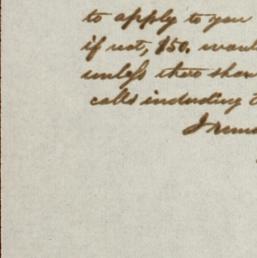 to apply to you
if not, $50. would
unless there shou
calls including t
I rema